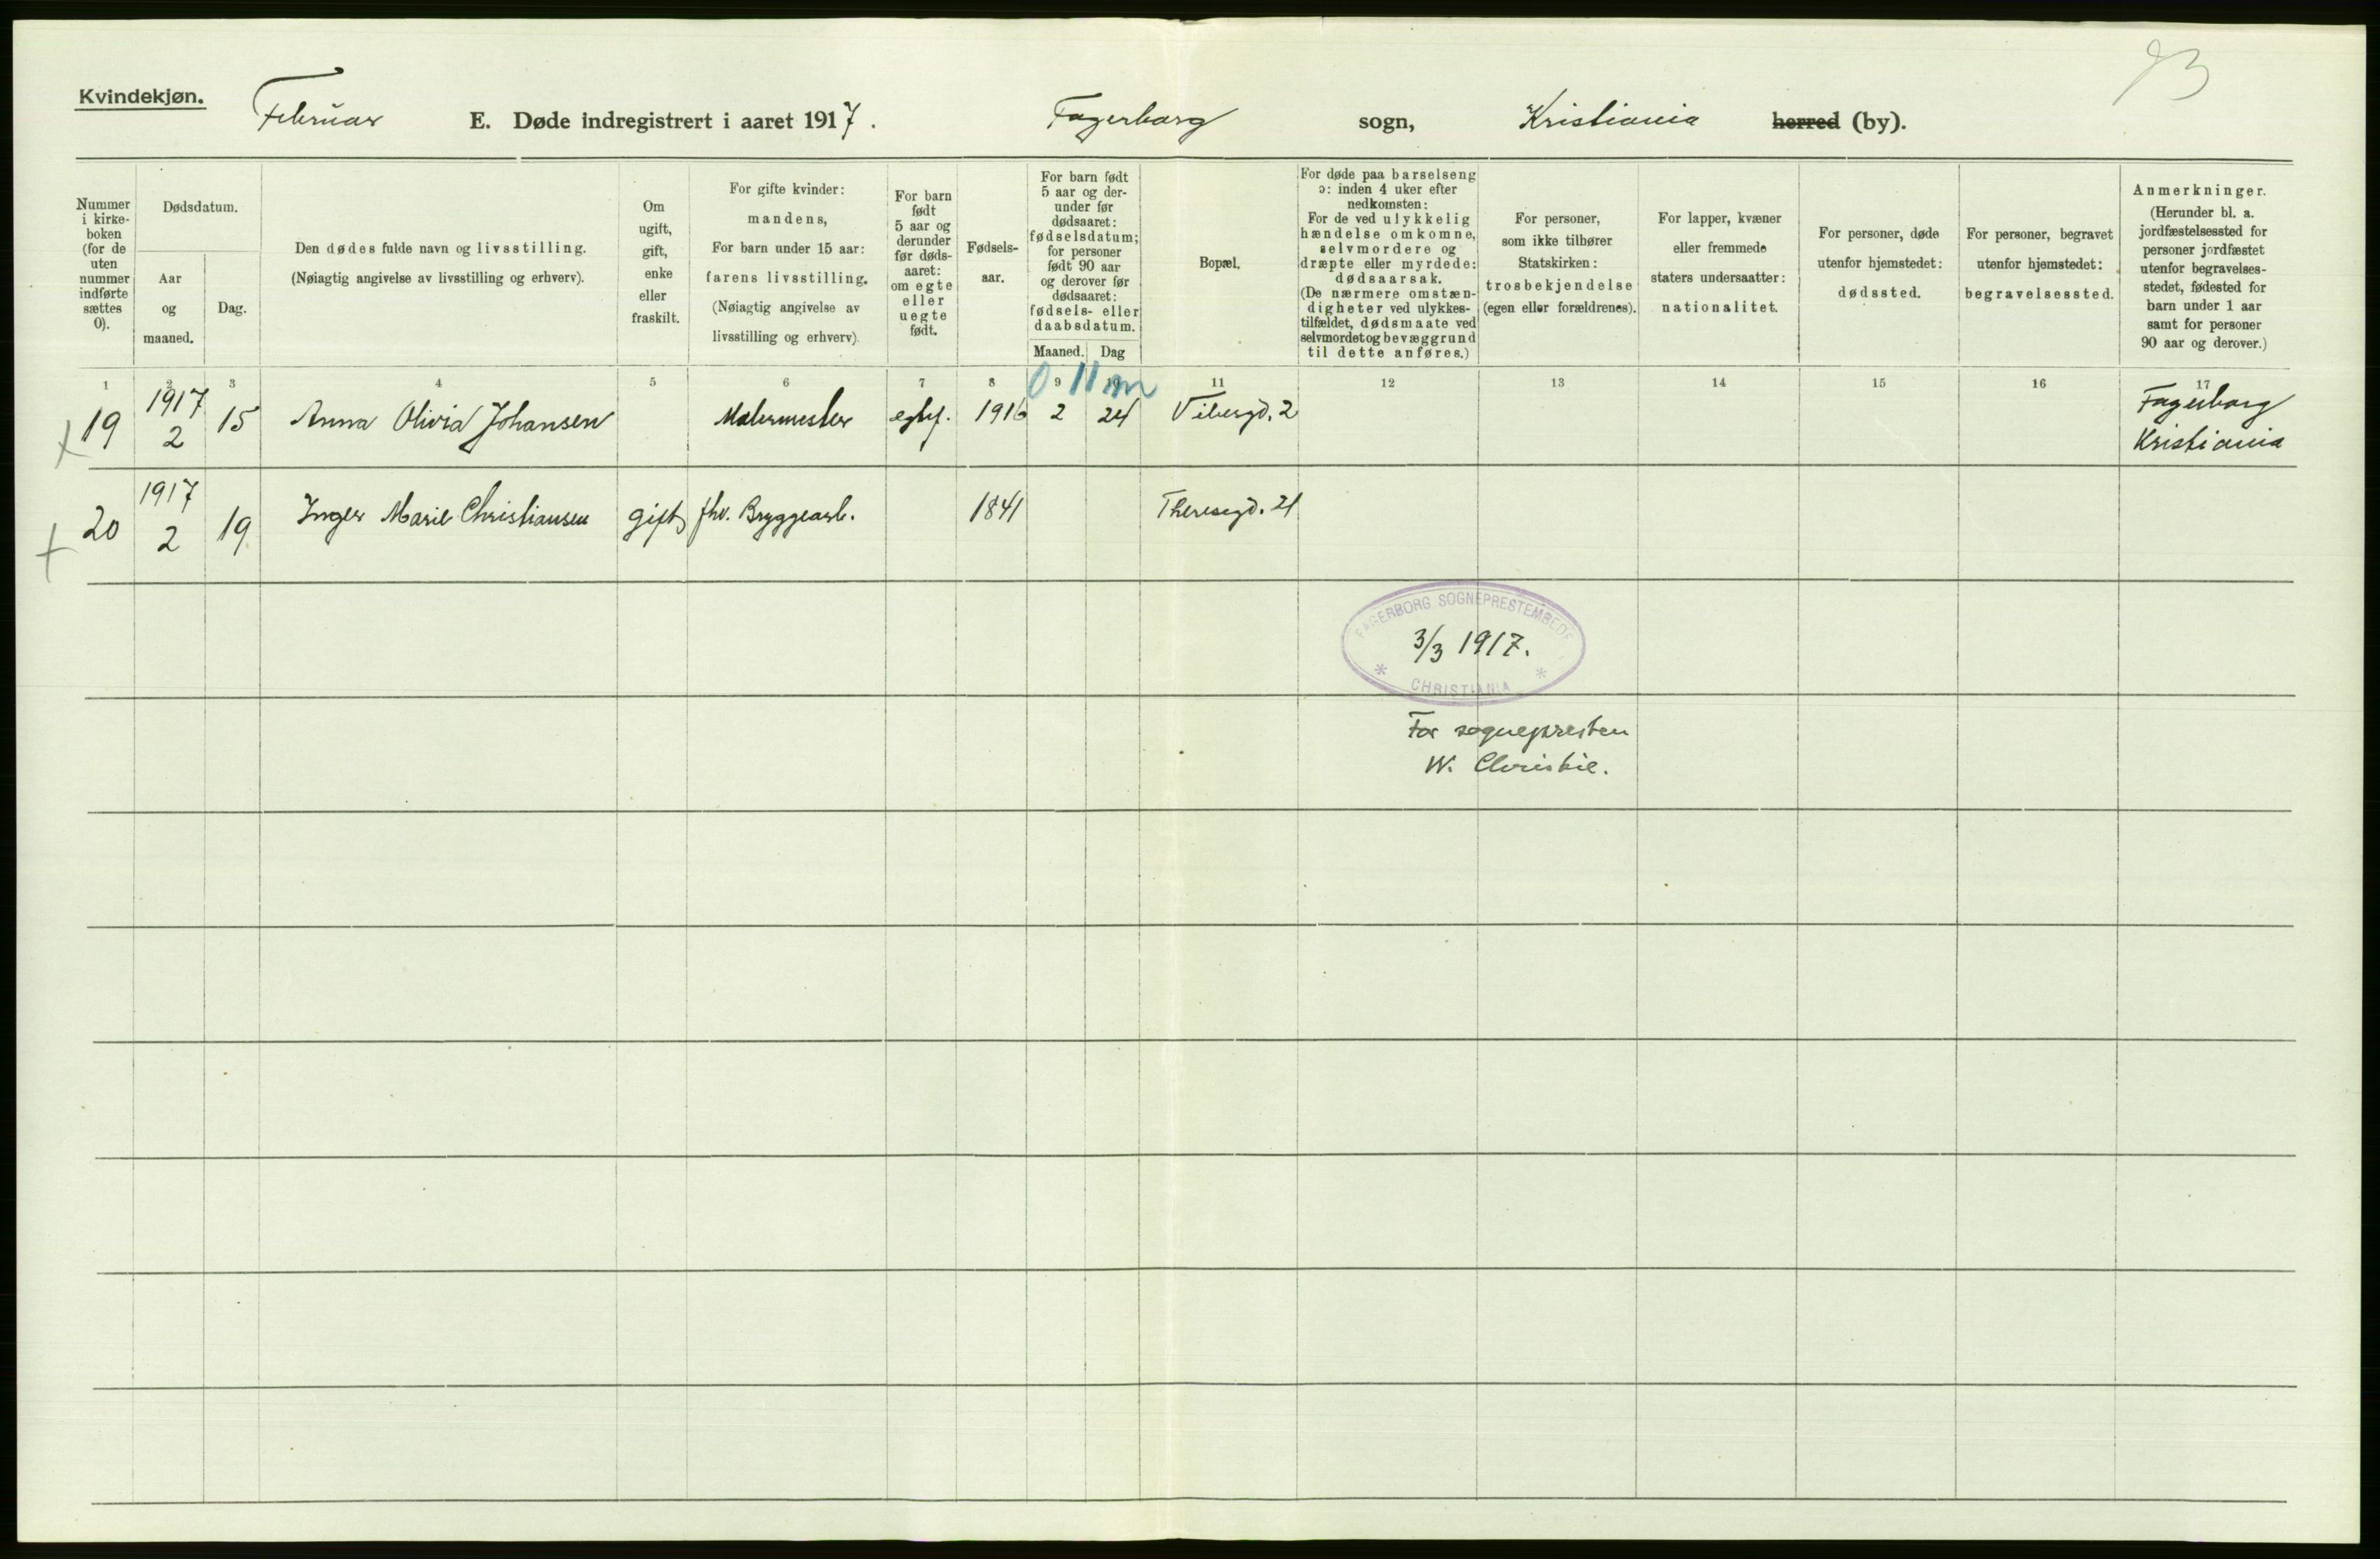 93
Kvindekjøn.
Februar E. Døde indregistrert i aaret 1917. Fagerborg sogn, Kristiania herred (by).
Nummer i kirke- boken (for de uten nummer indførte sættes 0).
Dødsdatum.
Aar og maaned.
Dag.
Den dødes fulde navn og livsstilling.
(Nøiagtig angivelse av livsstilling og erhverv).
Om ugift, gift, enke eller fraskilt.
For gifte kvinder: mandens,
For barn under 15 aar: farens livsstilling.
(Nøiagtig angivelse av livsstilling og erhverv).
For barn født 5 aar og derunder før døds- aaret: om egte eller uegte født.
Fødsels- aar.
For barn født 5 aar og der- under før dødsaaret: fødselsdatum; for personer født 90 aar og derover før dødsaaret: fødsels- eller daabsdatum.
Maaned. Dag
Bopæl.
For døde paa barselseng ɔ: inden 4 uker efter nedkomsten: For de ved ulykkelig hændelse omkomne, selvmordere og dræpte eller myrdede: dødsaarsak. (De nærmere omstæn- digheter ved ulykkes- tilfældet, dødsmaate ved selvmordet og bevæggrund til dette anføres.)
For personer, som ikke tilhører Statskirken: trosbekjendelse (egen eller forældrenes).
For lapper, kvæner eller fremmede staters undersaatter: nationalitet.
For personer, døde utenfor hjemstedet: dødssted.
For personer, begravet utenfor hjemstedet: begravelsessted.
Anmerkninger. (Herunder bl. a. jordfæstelsessted for personer jordfæstet utenfor begravelses- stedet, fødested for barn under 1 aar samt for personer 90 aar og derover.)
1 2 3 4 5 6 7 8 9 10 11 12 13 14 15 16 17
0 11 m
19 1917 2 15 Anna Olivia Johansen Malermester egtef. 1916 2 24 Vibesgd. 2 Fagerborg Kristiania
20 1917 2 19 Inger Marie Christiansen gift fhv. Bryggearb. 1841 Theresegd. 21
FAGERBORG SOGNEPRESTEMBEDE
3/3 1917.
* CHRISTIANIA *
For sognepresten
W. Christie.